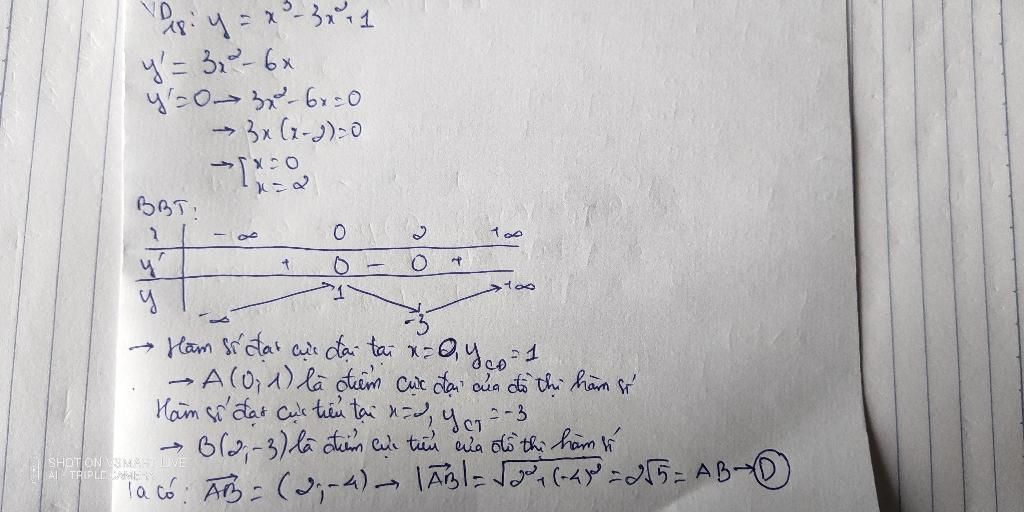 VD18: y = x³ - 3x² + 1
y' = 3x² - 6x
y' = 0 → 3x² - 6x = 0
→ 3x(x - 2) = 0
→ [ x = 0
x = 2
BBT:
x | -∞ 0 2 +∞
y' | + 0 - 0 +
y | -∞ 1 -3 +∞
→ Hàm số đạt cực đại tại x = 0, yCĐ = 1
→ A(0; 1) là điểm cực đại của đồ thị hàm số
Hàm số đạt cực tiểu tại x = 2, yCT = -3
→ B(2; -3) là điểm cực tiểu của đồ thị hàm số
Ta có: AB⃗ = (2; -4) → |AB⃗| = √(2² + (-4)²) = 2√5 = AB → D
SHOT ON VSMART LIVE
AI TRIPLE CAMERA